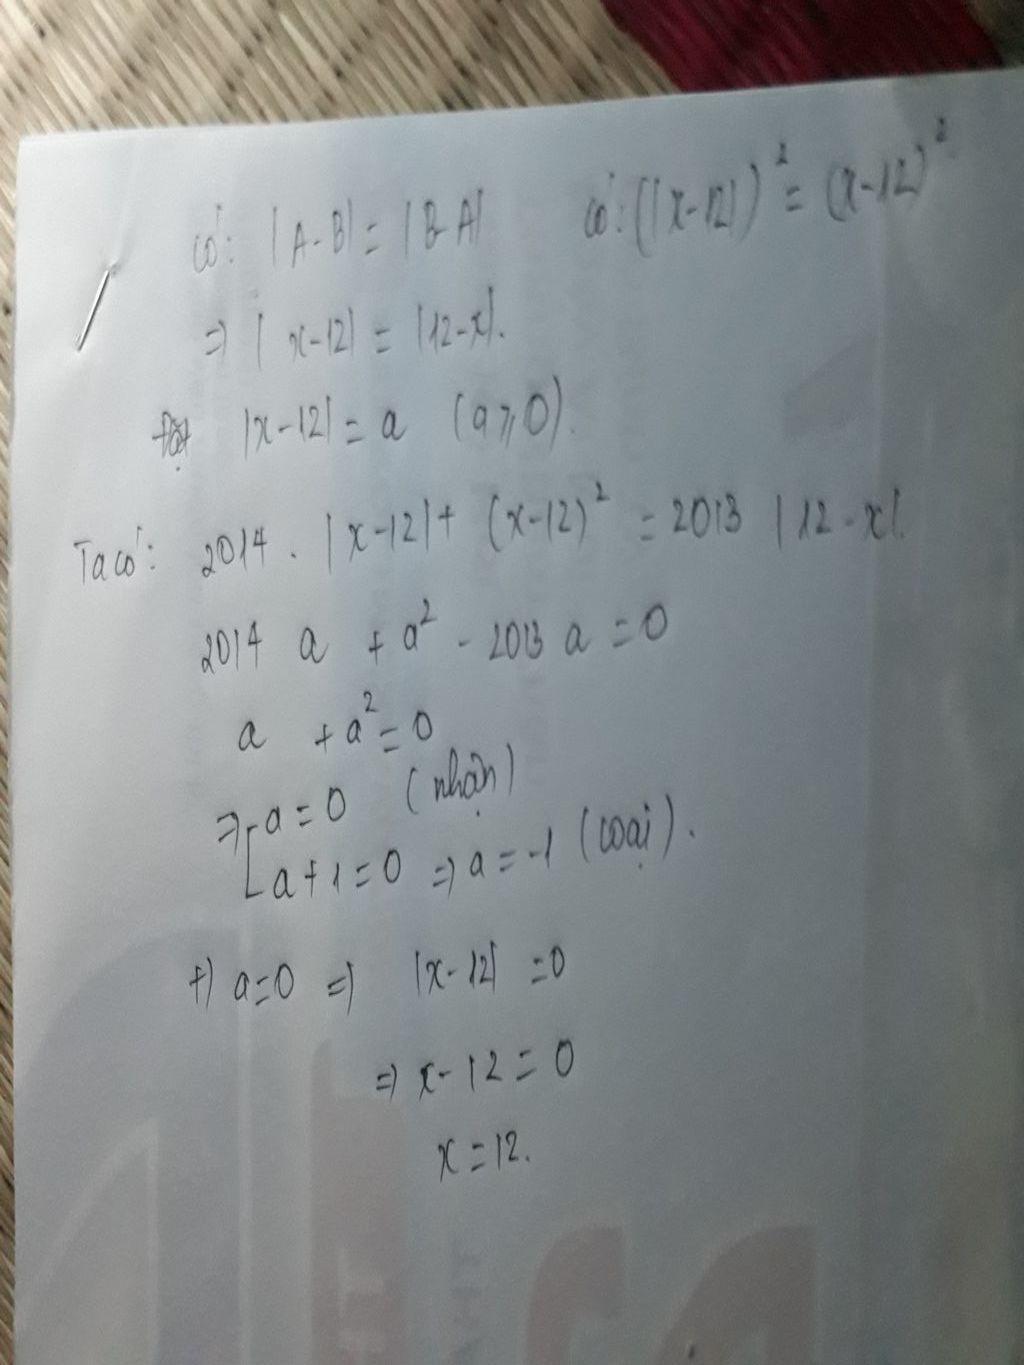 Có: |A-B| = |B-A|   Có: (|x-12|)² = (x-12)²
=> | x-12| = |12-x|.
Đặt |x-12| = a (a ≥ 0).
Ta có: 2014 . |x-12| + (x-12)² = 2013 |12-x|.
2014 a + a² - 2013 a = 0
a + a² = 0
=> [ a = 0 (nhận)
a + 1 = 0 => a = -1 (loại).
+) a=0 => |x-12| = 0
=> x - 12 = 0
x = 12.